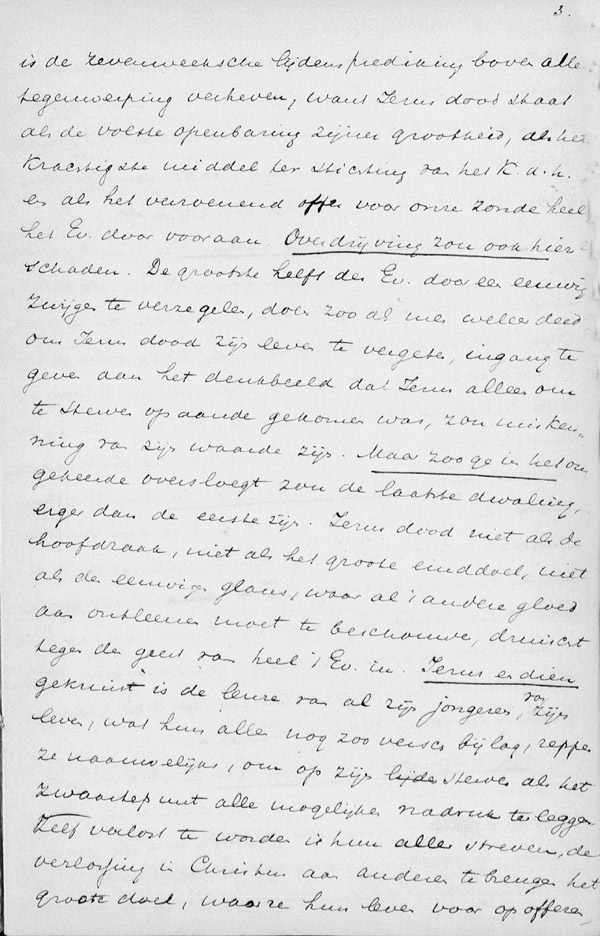 3.
is de zevenweeksche lijdensprediking boven alle
tegenwerping verheven, want Jezus dood staat
als de volste openbaring zijner grootheid, als het
krachtigste middel ter stichting van het K. d. h.
en als het verzoenend offer voor onze zonde heel
het Ev. door vooraan. Overdrijving zou ook hier
schaden. De grootste helft des Ev. door een eeuwig
zwijgen te verzegelen, door zoo als men weleer deed
om Jezus dood zijn leven te vergeten, ingang te
geven aan het denkbeeld dat Jezus alleen om
te sterven op aarde gekomen was, zou misken-
ning van zijn waarde zijn. Maar zoo ge in het om
gekeerde oversloegt zou de laatste dwaling,
erger dan de eerste zijn. Jezus dood niet als de
hoofdzaak, niet als het groote einddoel, niet
als de eeuwige glans, waar al 't andere gloed
aan ontleenen moet te beschouwen, druischt
tegen den geest van heel 't Ev. in. Jezus en dien
gekruist is de leuze van al zijn jongeren, van zijn
leven, wat hun allen nog zoo versch bijlag, reppen
ze nauwelijks, om op zijn sterven als het
zwaartepunt alle mogelijken nadruk te leggen
Zelf verlost te worden is hun aller streven, de
verlossing in Christus aan anderen te brengen het
groote doel, waar ze hun leven voor opofferen,